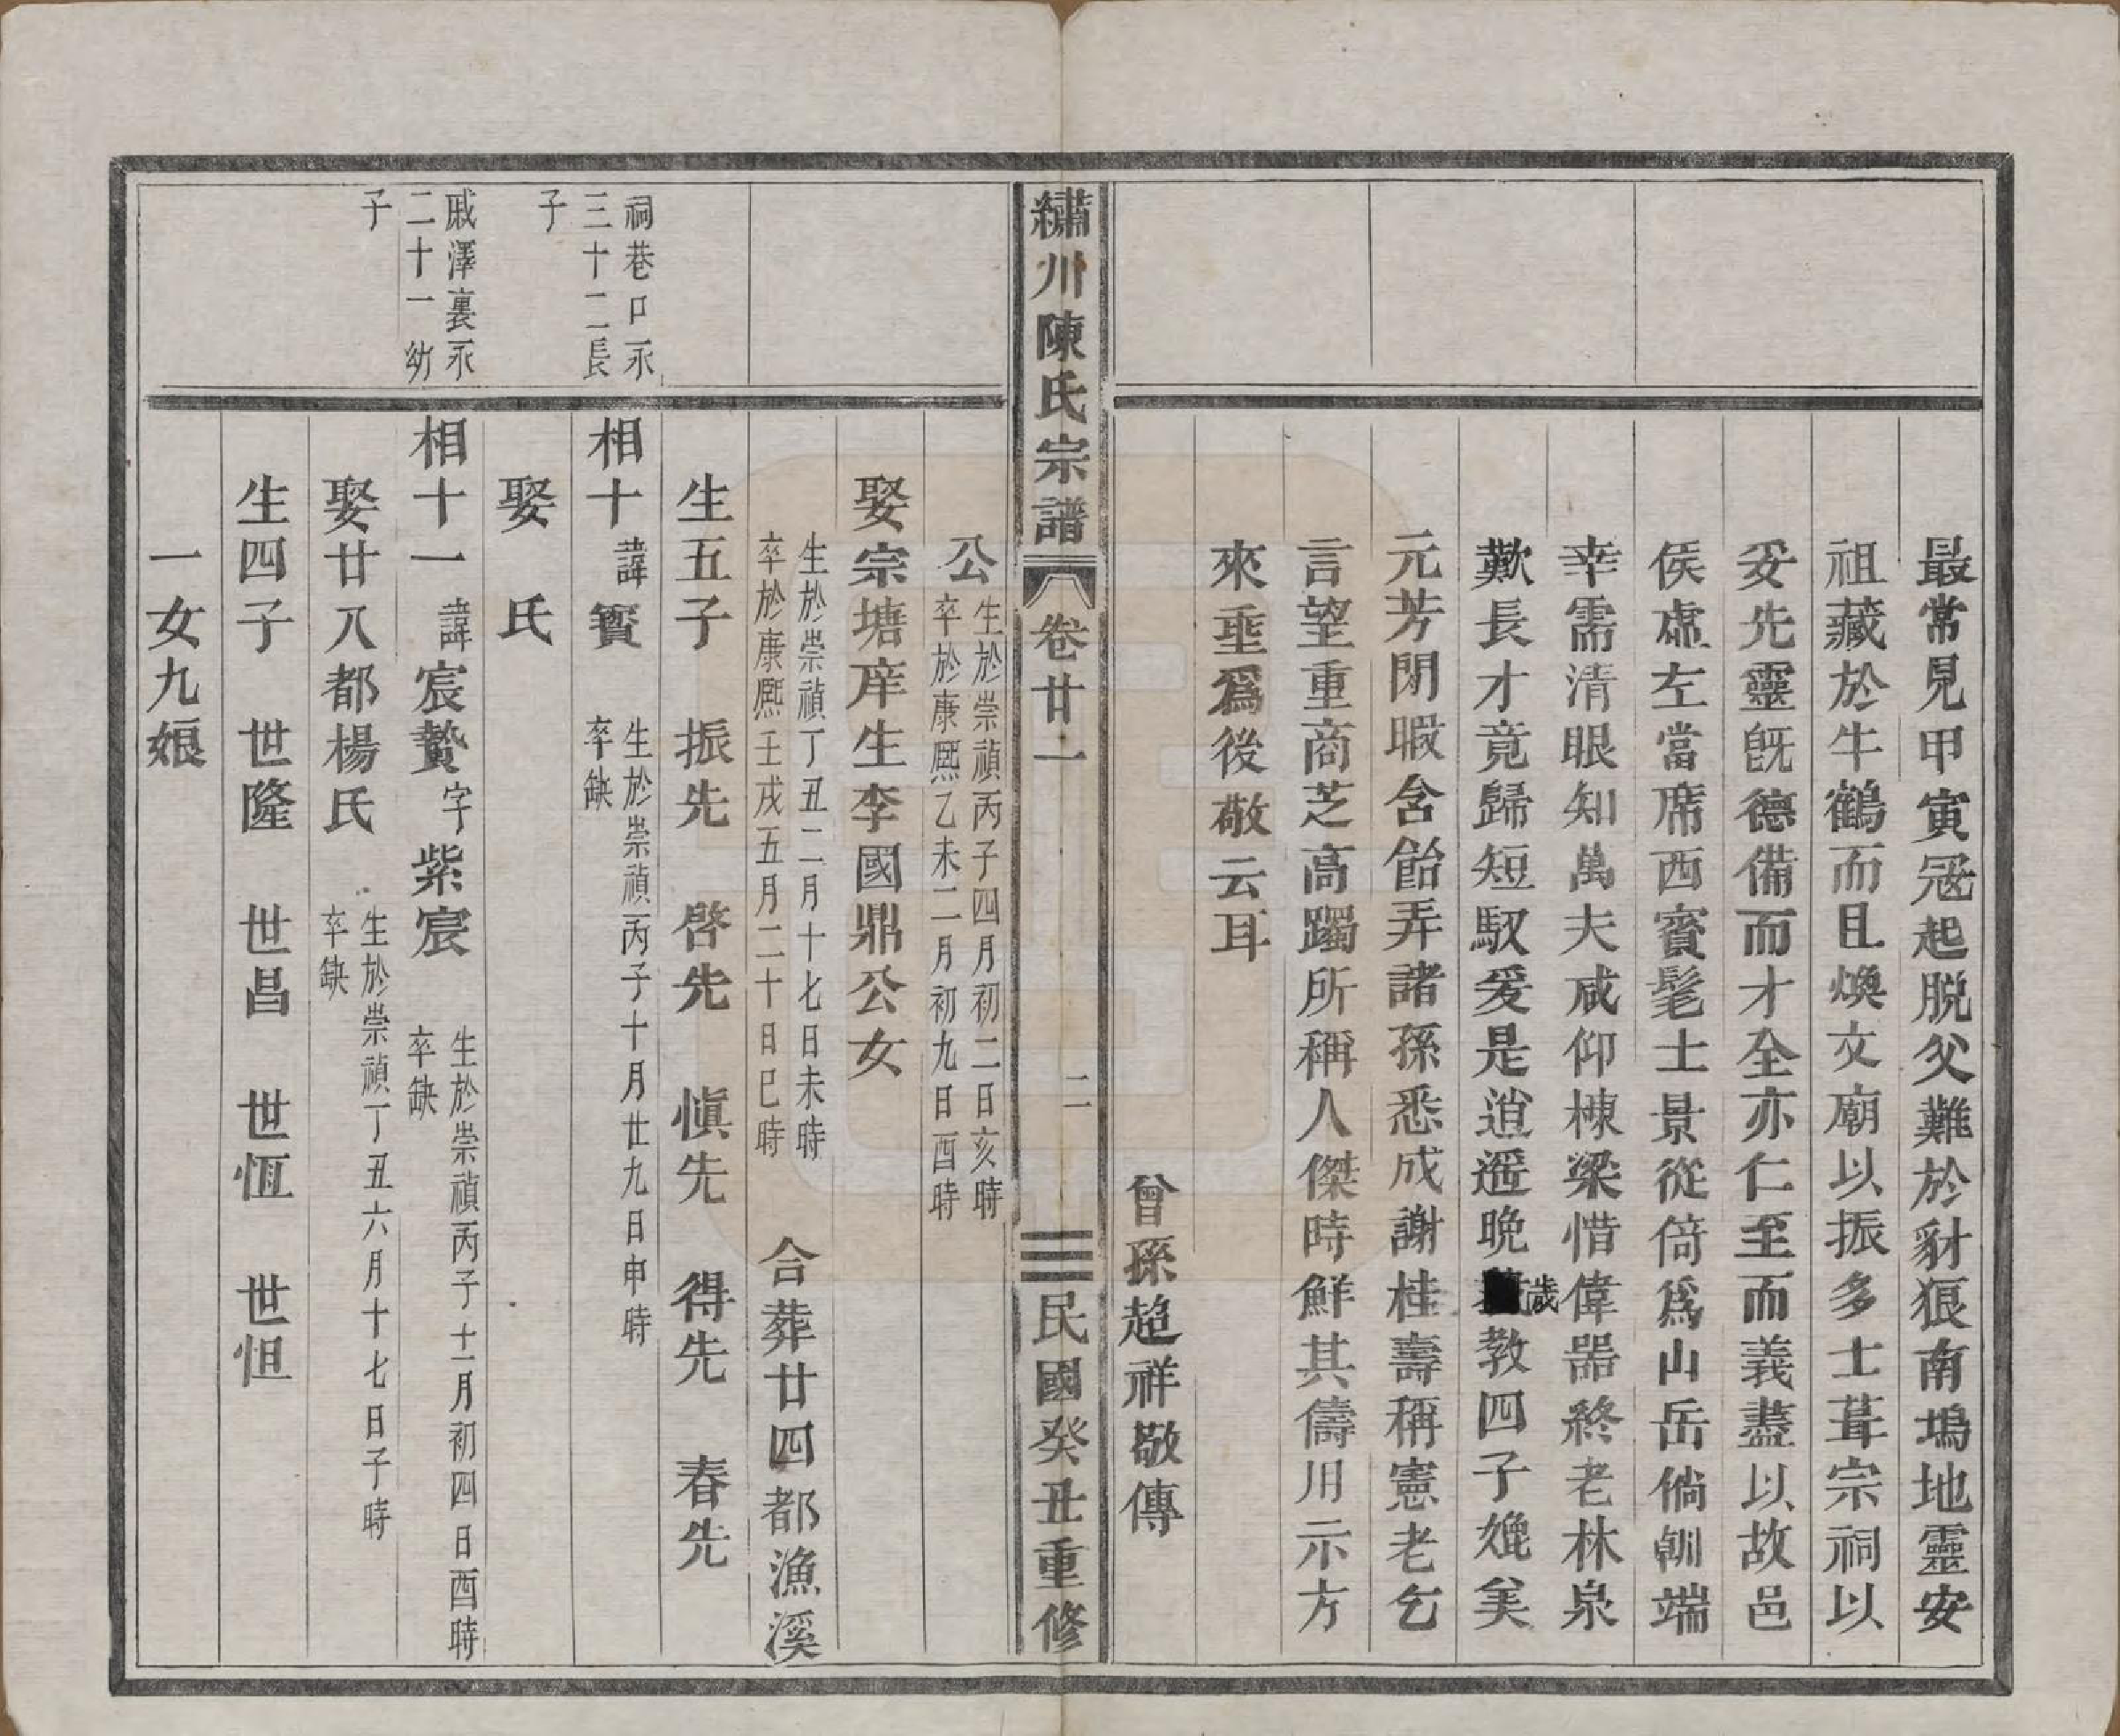 最常見甲寅寇起脱父難於豺狼南塢地靈安
祖藏於牛鶴而且煥文廟以振多士葺宗祠以
妥先靈旣德備而才全亦仁至而義盡以故邑
侯虛左當席西賓髦士景從倚爲山岳倘朝端
幸需清眼知萬夫咸仰棟梁惜偉器終老林泉
歎長才竟歸短馭爰是逍遥晚歲教四子媲美
元芳閉暇含飴弄諸孫悉成謝桂壽稱憲老乞
言望重商芝高躅所稱人傑時鮮其儔用示方
來垂爲後敬云耳
曾孫超祥敬傳
繡川陳氏宗譜
卷廿一
二
民國癸丑重修
公
生於崇禎丙子四月初二日亥時
卒於康熙乙未二月初九日酉時
娶宗塘庠生李國鼎公女
生於崇禎丁丑二月十七日未時
卒於康熙壬戌五月二十日巳時
合葬廿四都漁溪
生五子 振先 啓先 愼先 得先 春先
祠巷口永
三十二長
子
相十 諱賓
生於崇禎丙子十月廿九日申時
卒缺
娶 氏
戚澤裏永
二十一幼
子
相十一 諱宸贊 字紫宸
生於崇禎丙子十二月初四日酉時
卒缺
娶廿八都楊氏
生於崇禎丁丑六月十七日子時
卒缺
生四子 世隆 世昌 世恆 世怛
一女九娘